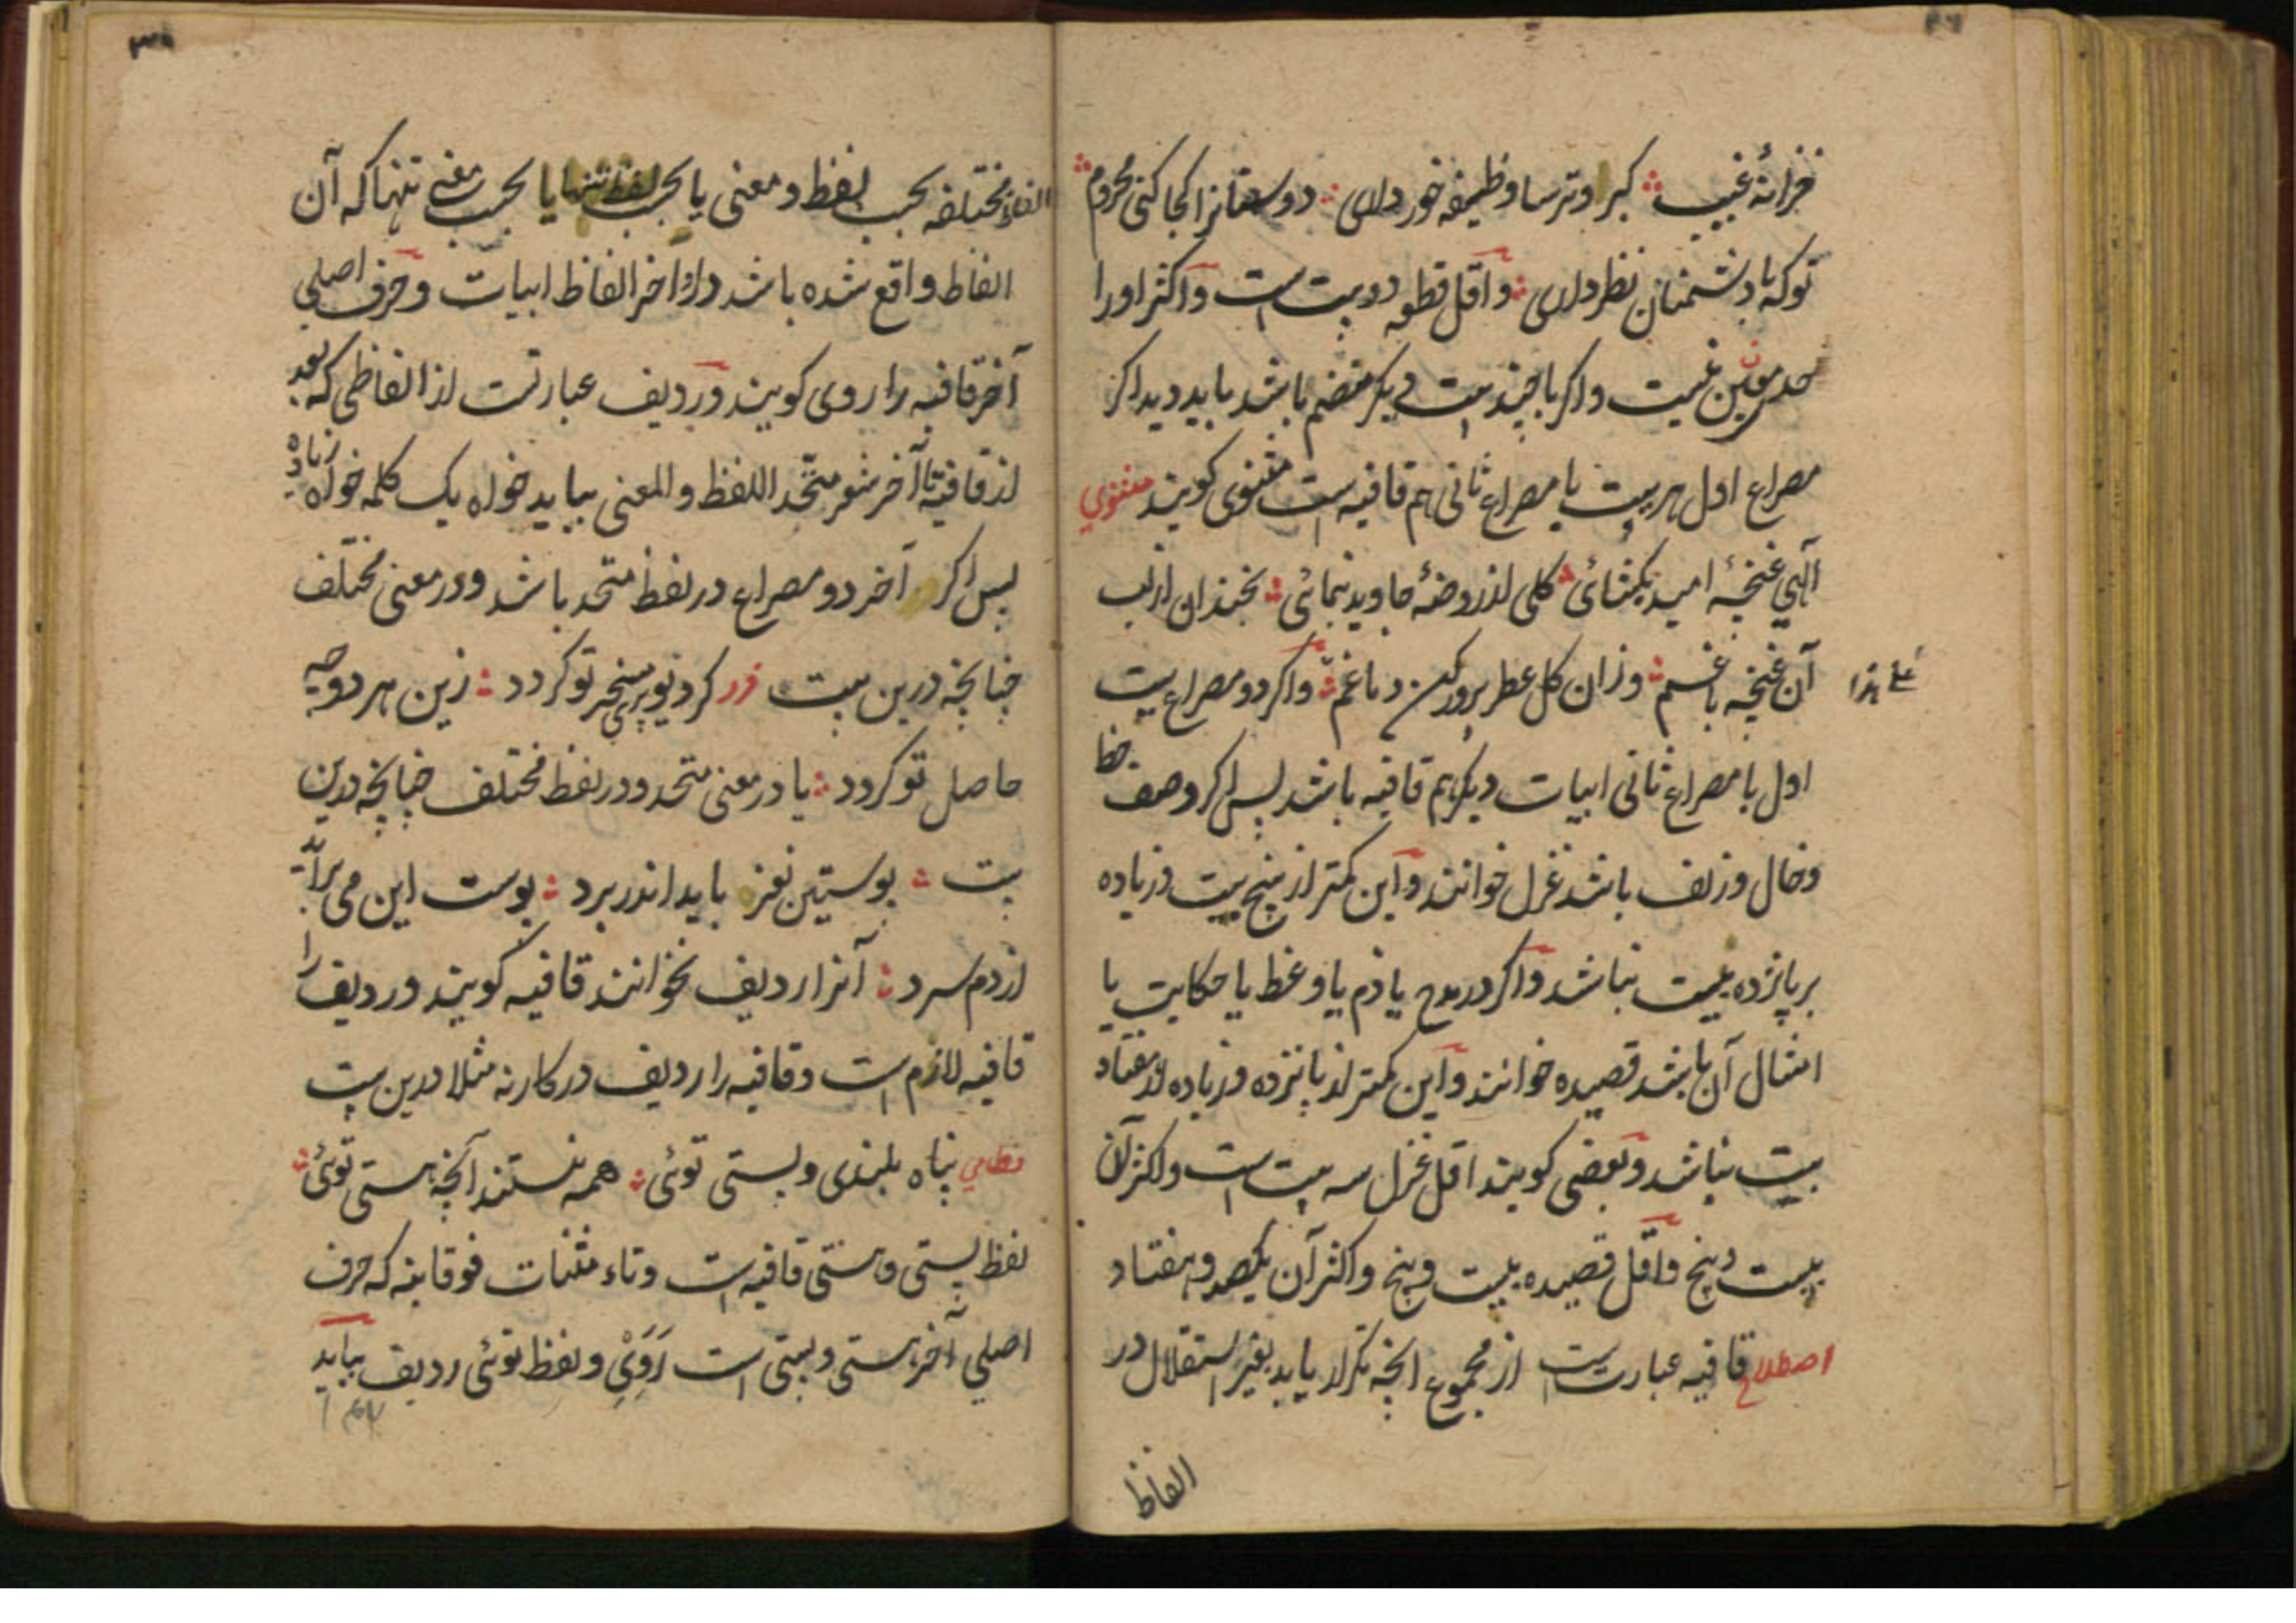 خزانهٔ غیب ؞ کبر و ترسا وظیفه خور داری ؞ دوستانرا کجا کنی محروم ؞
توکه با دشمنان نظر داری ؞ و اقل قطعه دو بیت است و اکثر اورا
حد معین نیست و اکر با چند بیت دیکر منضم باشد باید دید اکر
مصراع اول هر بیت با مصراع ثانی هم قافیه است مثنوی کویند مثنوی
الهی غنچهٔ امید بکشائی ؞ کلی از روضهٔ جاوید بنمائی ؞ بخندان از لب
آن غنچه باغم ؞ وزان کل عطر پرور کن دماغم ؞ و اکر دو مصراع بیت
علی هذا
اول با مصراع ثانی ابیات دیکر هم قافیه باشد پس اکر وصف خط
و خال و زلف باشد غزل خوانند و این کمتر از پنج بیت و زیاده
بر پانزده بیت نباشد و اکر در مدح یا ذم یا وعظ یا حکایت یا
امثال آن باشد قصیده خوانند و این کمتر از پانزده و زیاده از هفتاد
بیت نباشد و بعضی کویند اقل غزل سه بیت است و اکثر آن
بیست و پنج و اقل قصیده بیست و پنج و اکثر آن یکصد و هفتاد
اصطلاح قافیه عبارت است از مجموع انچه تکرار یابد بغیر استقلال در
الفاظ
۳۰
الفاظ مختلفه بحسب لفظ و معنی یا بحسب لفظ تنها یا بحسب معنی تنها که آن
الفاظ واقع شده باشد در اخر الفاظ ابیات و حرف اصلی
آخر قافیه را روی کویند و ردیف عبارتست از الفاظی که بعد
از قافیه تا آخر شعر متّحد اللفظ والمعنی بیاید خواه یک کلمه خواه زیاده
پس اکر آخر دو مصراع در لفظ متحد باشد و در معنی مختلف
چنانچه درین بیت فرد کر دنیوی پر سنجر تو کردد ؞ زین هر دو چه
حاصل تو کردد ؞ یا در معنی متحد و در لفظ مختلف چنانچه درین
بیت ؞ پوستین نغز باید اندر برد ؞ پوست این می براید
از دم سرد ؞ آنرا ردیف نخوانند قافیه کویند و ردیف را
قافیه لازم است و قافیه را ردیف در کار نه مثلا درین بیت
نظامی پناه بلندی و پستی توئی ؞ همه نیستند آنچه هستی توئی ؞
لفظ پستی و هستی قافیه است و تاء مثنات فوقانیه که حرف
اصلی آخر هستی و پستی است رَوِی و لفظ توئی ردیف بباید